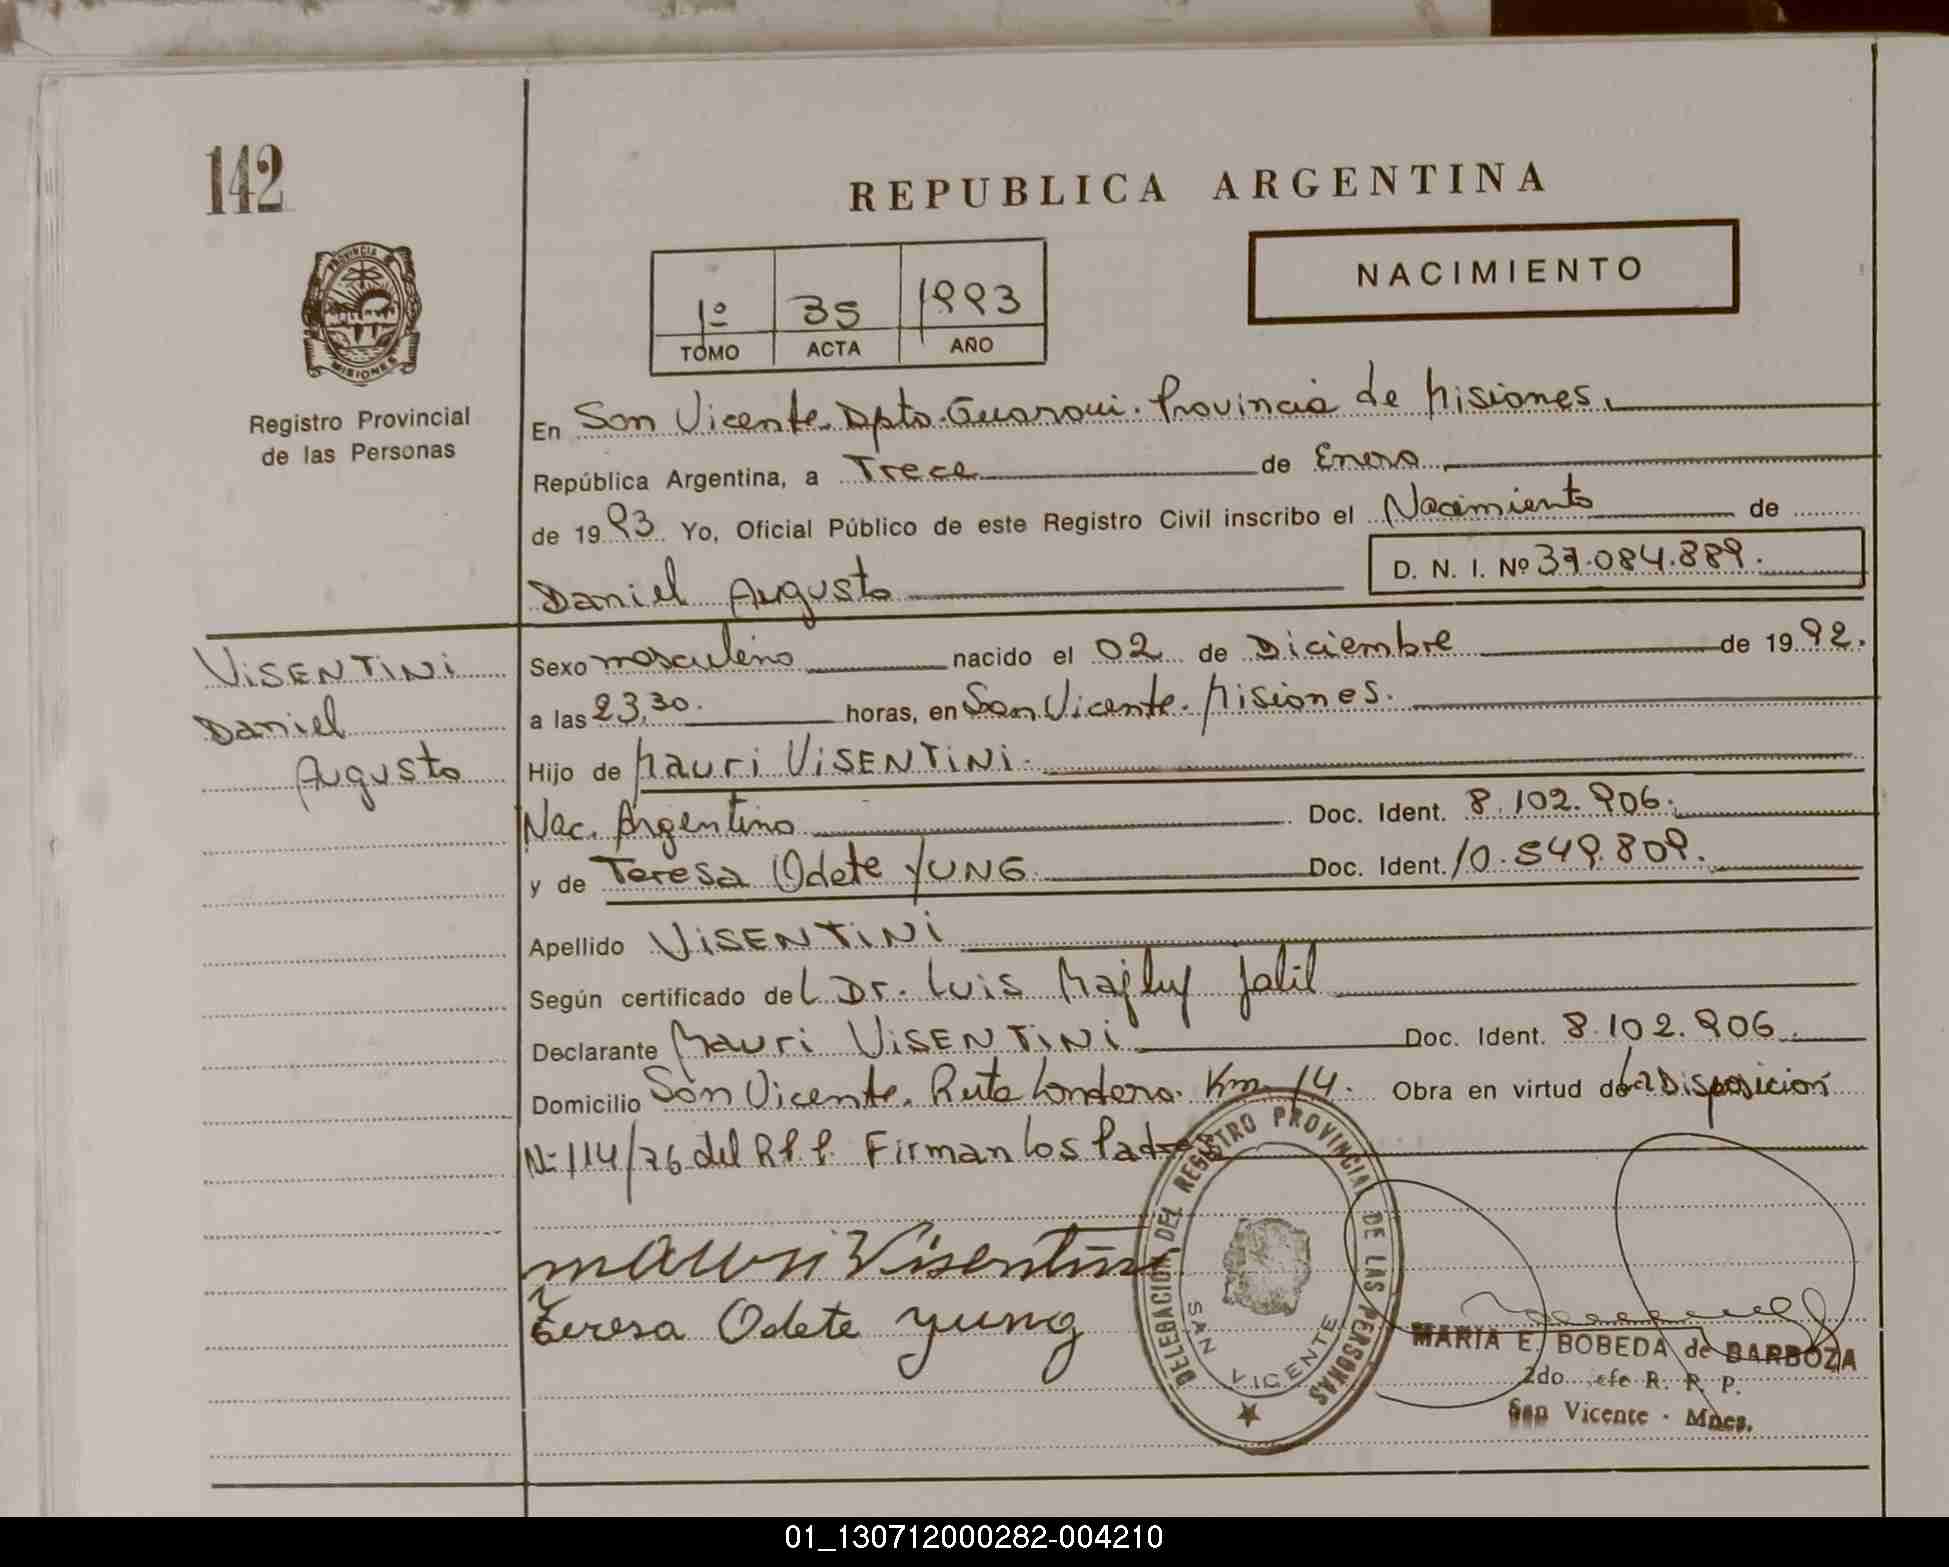 142
REPUBLICA ARGENTINA
NACIMIENTO
1º 35 1993
TOMO ACTA AÑO
PROVINCIA DE MISIONES
Registro Provincial
de las Personas
En San Vicente. Dpto. Guaraní. Provincia de Misiones.
República Argentina, a Trece de Enero
de 1993 Yo, Oficial Público de este Registro Civil inscribo el Nacimiento de
D. N. I. Nº 37.084.889.
Daniel Augusto
VISENTINI
Daniel
Augusto
Sexo masculino nacido el 02 de Diciembre de 1992.
a las 23,30. horas, en San Vicente. Misiones.
Hijo de Mauri VISENTINI.
Nac. Argentino Doc. Ident. 8.102.906.
y de Teresa Odete YUNG Doc. Ident. 10.549.809.
Apellido VISENTINI
Según certificado del Dr. Luis Jalil
Declarante Mauri VISENTINI Doc. Ident. 8.102.906.
Domicilio San Vicente. Ruta Km. 14. Obra en virtud de la Disposición
Nº 114/76 del R.P.P. Firman los Padres
Mauri Visentini
Teresa Odete Yung
DELEGACION DEL REGISTRO PROVINCIAL DE LAS PERSONAS
SAN VICENTE
MARIA E. BOBEDA de BARBOZA
2do. Jefe R. P. P.
San Vicente - Mnes.
01_130712000282-004210